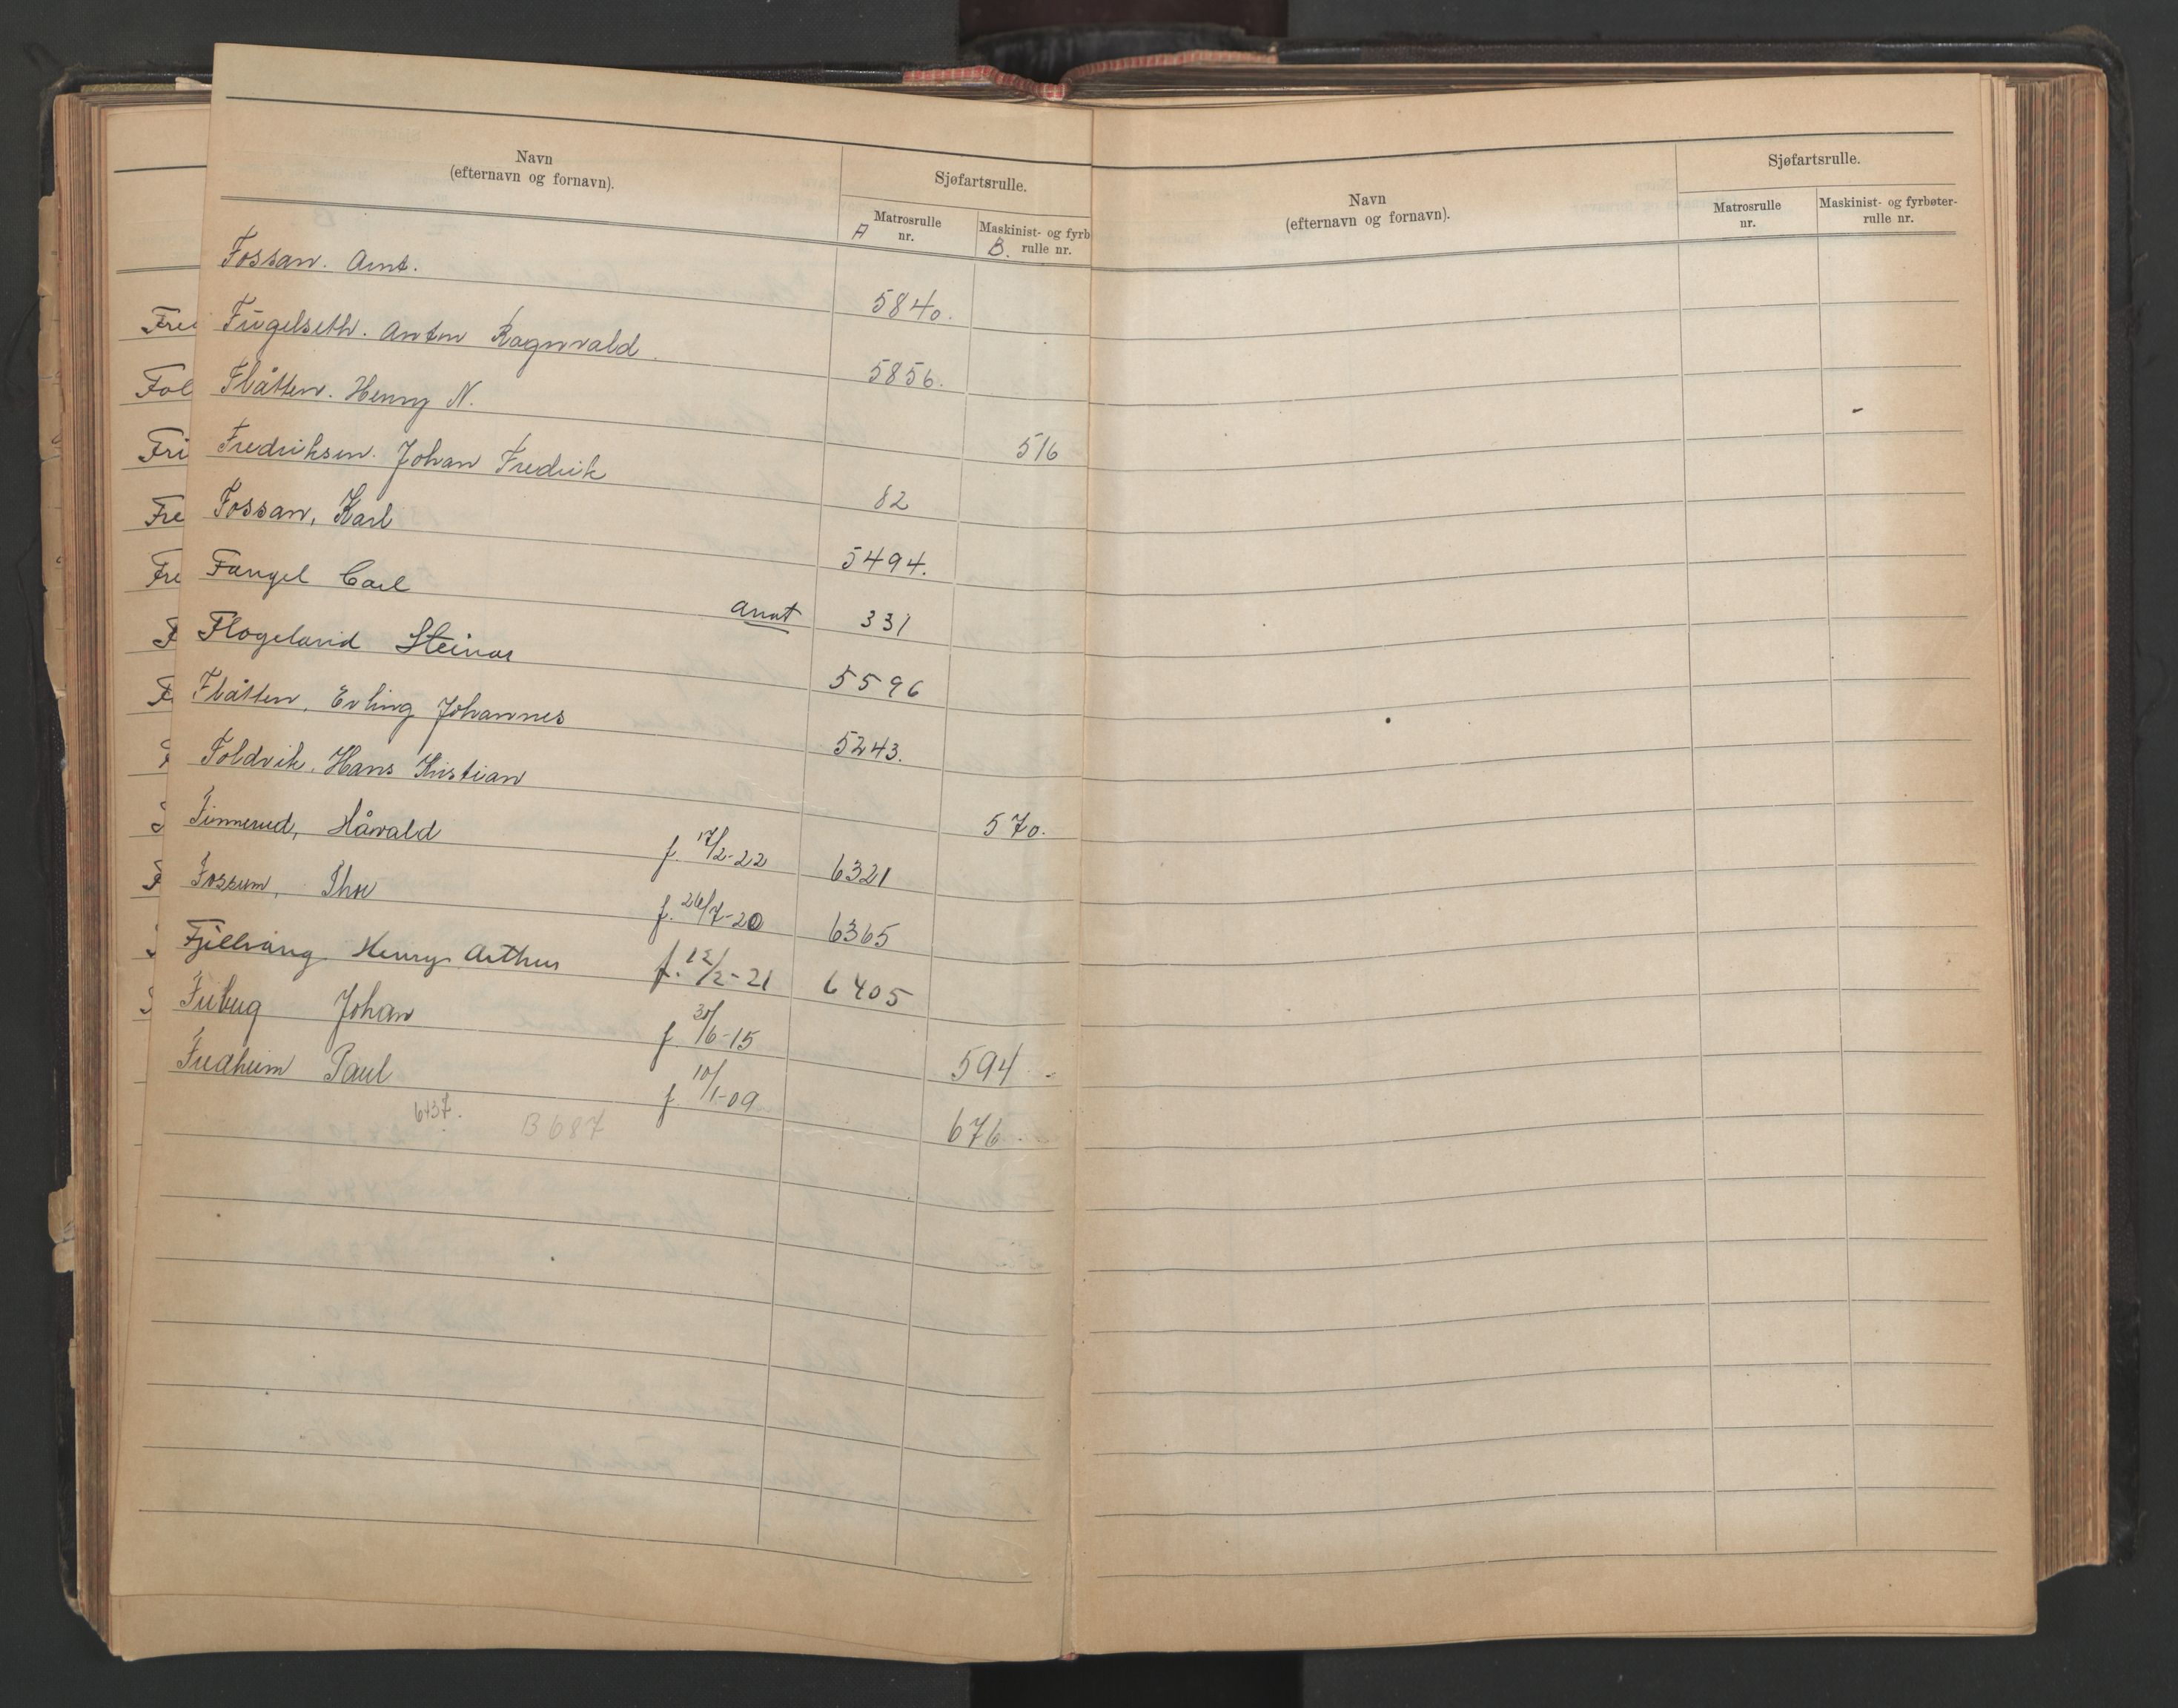 Navn
(efternavn og fornavn).
Sjøfartsrulle.
A Matrosrulle
nr.
Maskinist- og fyrb
B. rulle nr.
Fossan. Arnt. 5840.
Fugelseth. Anton Ragnvald. 5856.
Flåtten. Henry N. 516
Fredriksen. Johan Fredrik 82
Fossan, Karl 5494.
Fangel Carl anat 331
Flogeland Steinar 5596
Flåtten, Erling Johannes 5243.
Foldvik, Hans Kristian 570.
Finnerud, Håvald f. 17/2-22 6321
Fossum, Thor f. 26/7-20 6365
Fjellvang Henry Arthur f. 12/2-21 6405
Johan f. 30/6-15 594
Fredheim Paul f. 10/1-09 676
6437. B 687
Frei
Fol
Fri
Fre
Fre
F
F
F
Navn
(efternavn og fornavn).
Sjøfartsrulle.
Matrosrulle
nr.
Maskinist- og fyrbøter-
rulle nr.